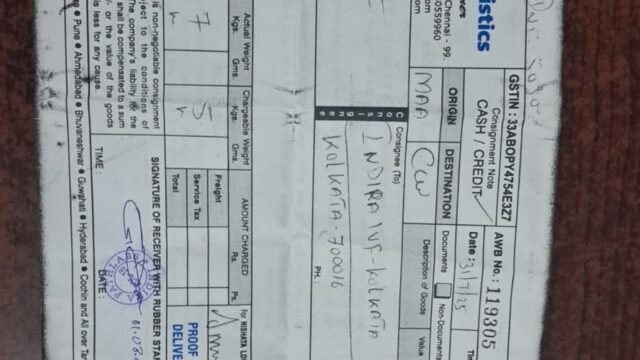 istics
Chennai - 99.
0559960
om
GSTIN : 33ABOPY4754E3Z7
Consignment Note
CASH / CREDIT
AWB No. : 119305
Date : 31/7/25
ORIGIN
DESTINATION
MAA
CCU
Documents
Non-Documents
Description of Goods
Value
Consignee (To)
INDIRA IVF-KOLKATA
KOLKATA-700016
PH :
Actual Weight
Kgs.
Gms.
Chargeable Weight
Kgs.
Gms.
AMOUNT CHARGED
Rs.
Ps.
7
5
Freight
Service Tax
Total
PROOF
DELIVE
is non-negotiable consignment
ject to the conditions of
The company's liability for the
shall be compensated to a sum
/- or the value of the goods
is less for any cause.
SIGNATURE OF RECEIVER WITH RUBBER STAM
TIME :
DATE :
e ● Pune ● Ahmedabad ● Bhuvaneshwar ● Guwahati ● Hyderabad ● Cochin and All over Ta